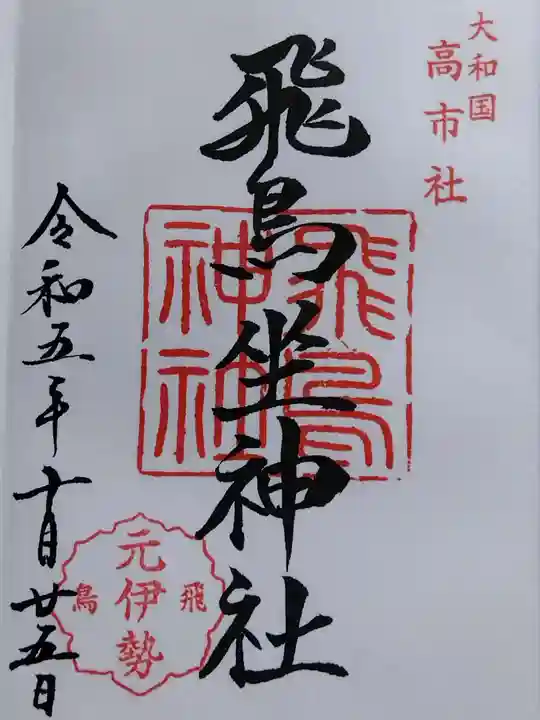 大和国
高市社
飛鳥坐神社
飛鳥
神社
令和五年十月廿五日
元伊勢
飛鳥